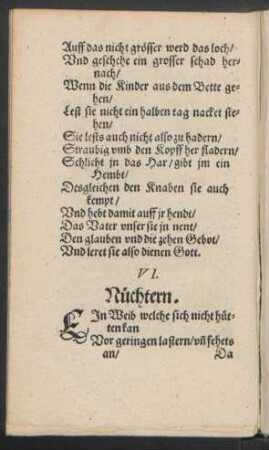 Auff das nicht grösser werd das loch/
Vnd geschehe ein grosser schad her-
nach/
Wenn die Kinder aus dem Bette ge-
hen/
Lest sie nicht ein halben tag nacket ste-
hen/
Sie lests auch nicht also zu hadern/
Straubig vmb den Kopff her fladern/
Schlicht jn das Har/ gibt jm ein
Hembt/
Desgleichen den Knaben sie auch
kempt/
Vnd hebt damit auff jr hendt/
Das Vater vnser sie jn nent/
Den glauben vnd die zehen Gebot/
Vnd leret sie also dienen Gott.
VI.
Nüchtern.
EIn Weib welche sich nicht hüt-
ten kan
Vor geringen lastern/ vñ fehets
an/
Da